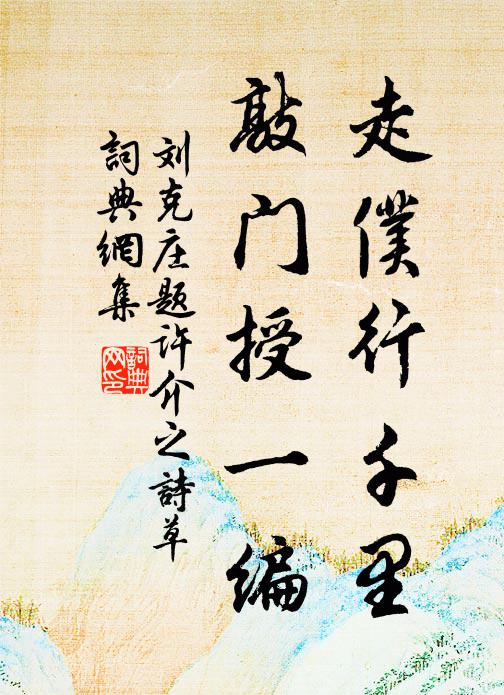 走僕行千里
敲门授一编
刘克庄题许介之詩草
詞典網集
詞典网印